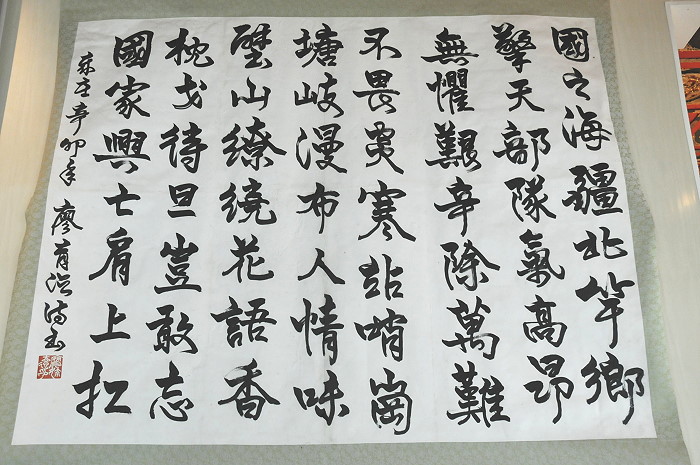 國之海疆北竿鄉
擎天部隊氣高昂
無懼艱辛除萬難
不畏炎寒站哨崗
塘岐漫布人情味
壁山繚繞花語香
枕戈待旦豈敢忘
國家興亡肩上扛
歲在辛卯年 廖育